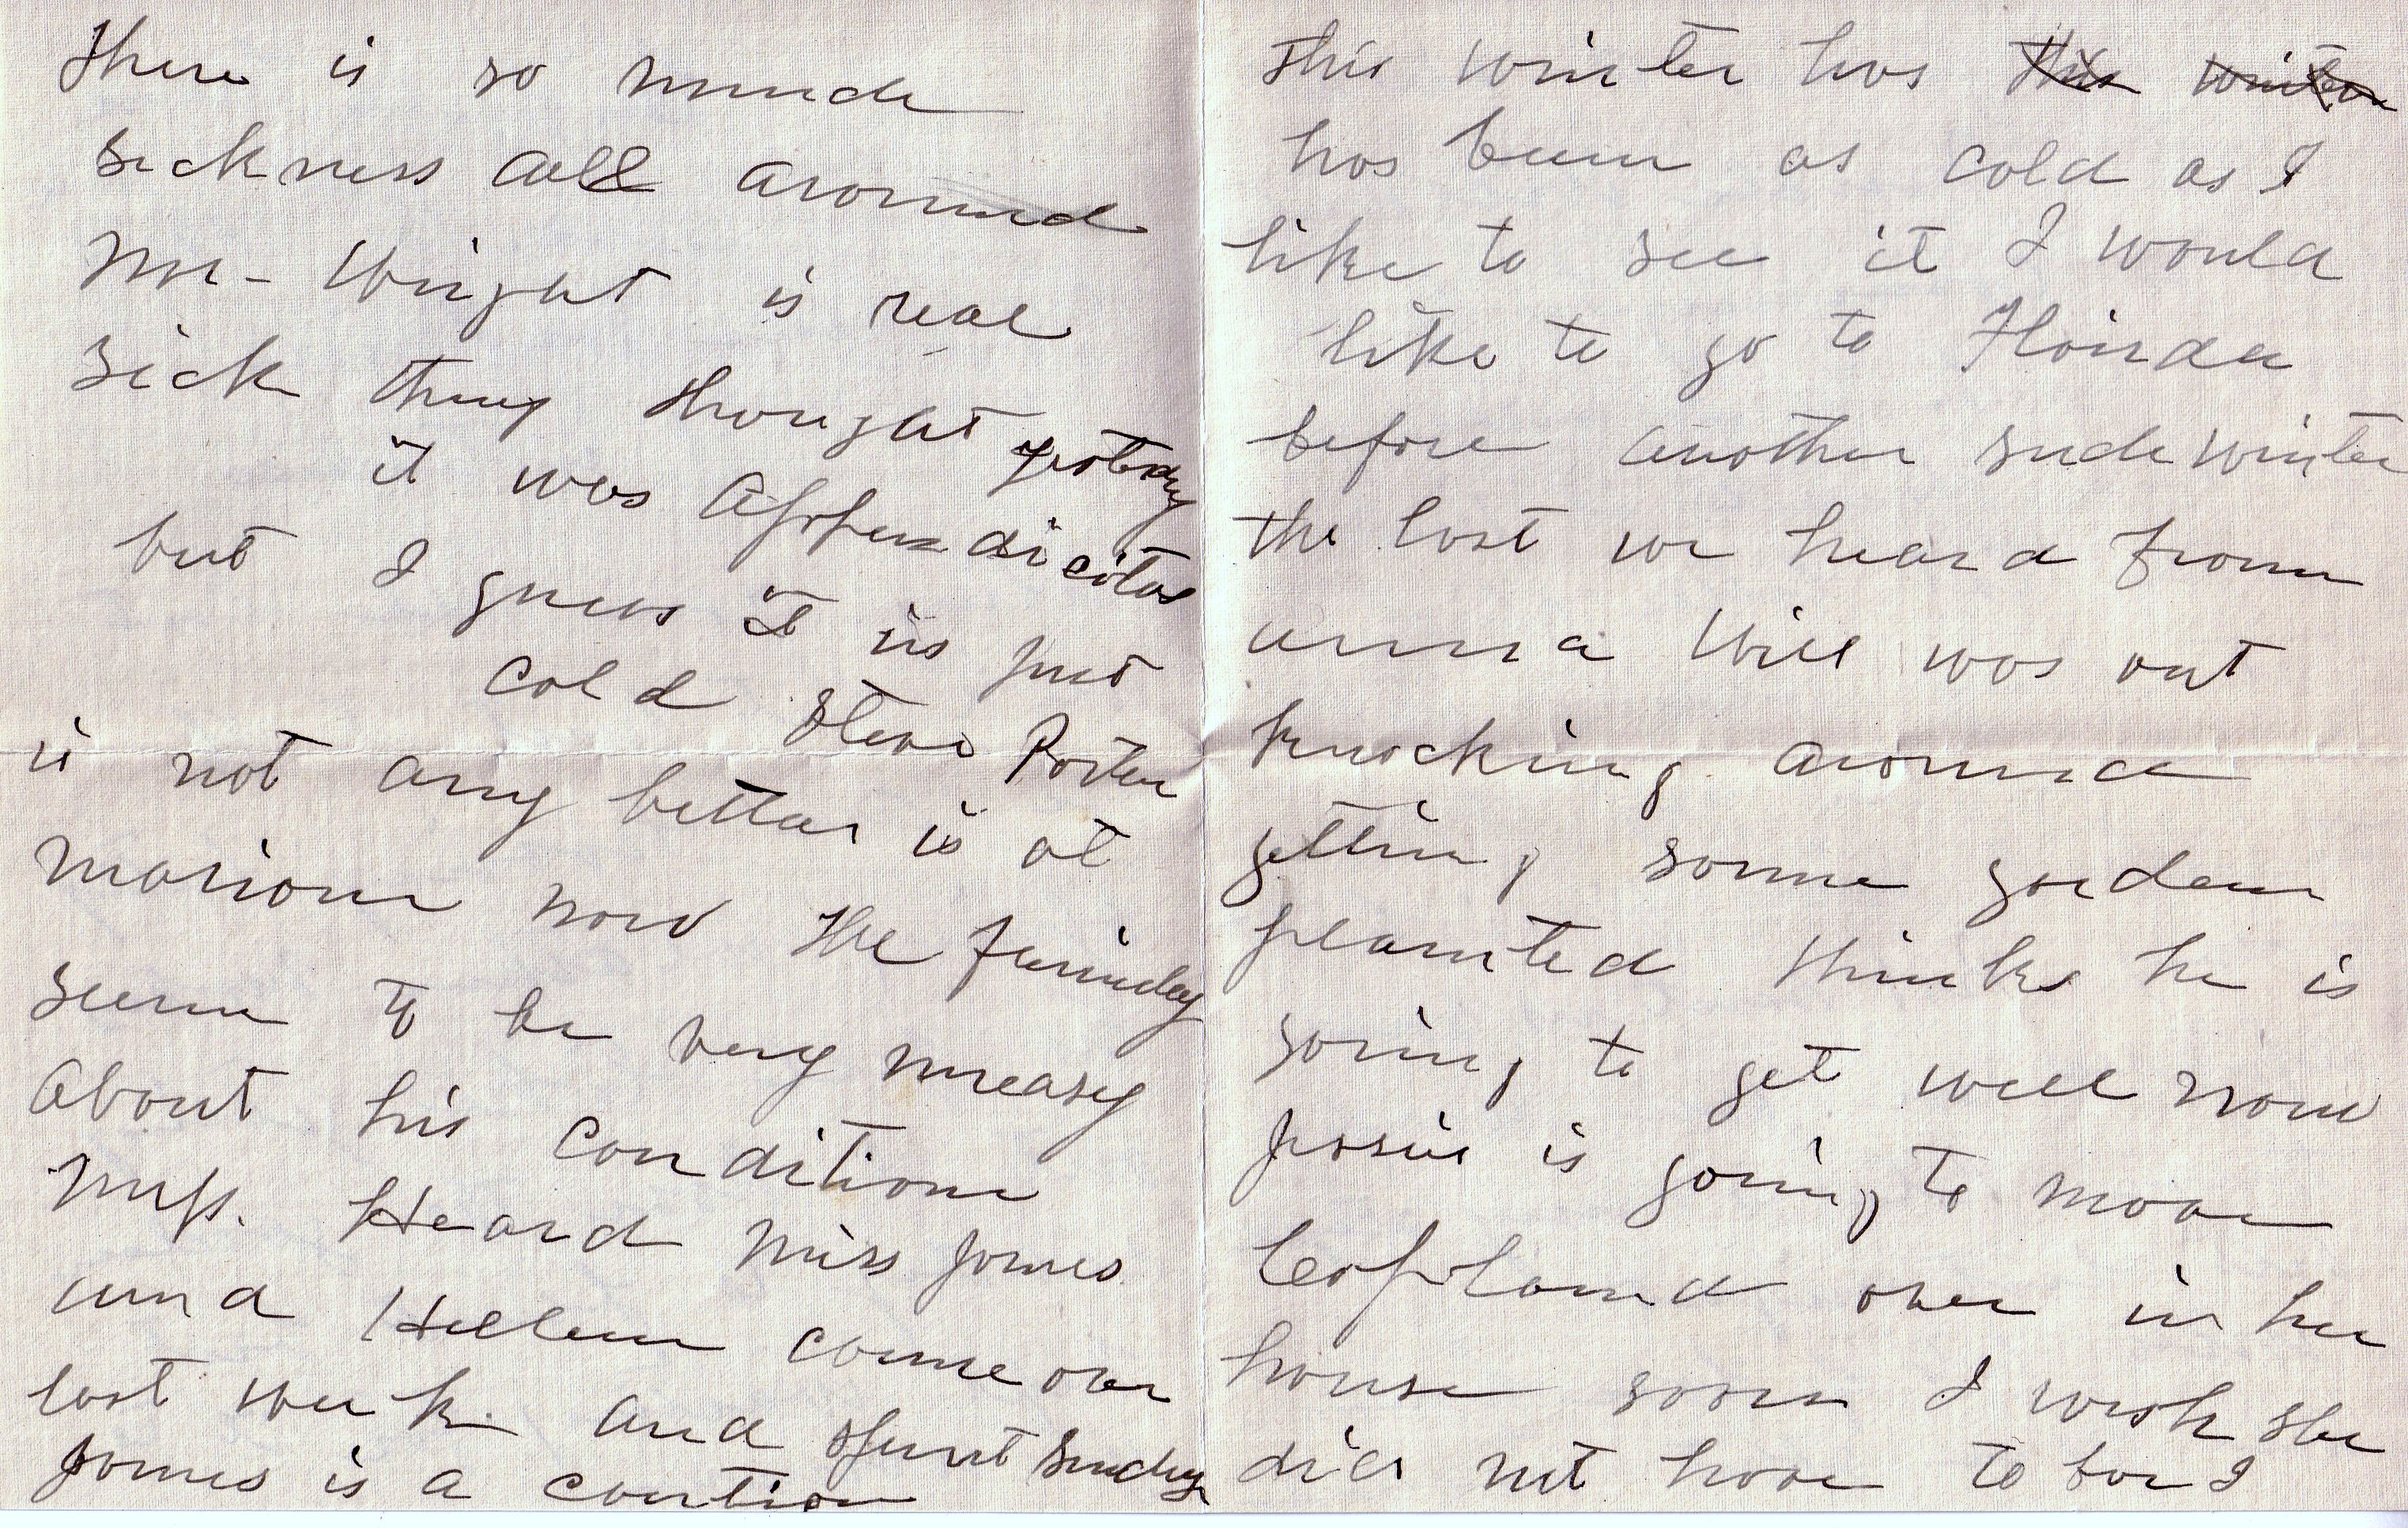 there is so much
sickness all around
Mr - Wright is real
sick they thought
it was Appendicitas
but I guess it is just
cold Steve Porter
is not any better is at
Marion now the
seem to be very uneasy
About his condition
Mrs. Heard Miss Jones
and Hellen come over
last week and spent Sunday
Jones is a caution
this winter has this winter
has been as cold as I
like to see it I would
like to go to Florida
before another such winter
the last we heard from
anna Will was out
knocking around
getting some garden
planted thinks he is
going to get well now
josie is going to move
Copland over in her
house soon I wish she
did not have to for I